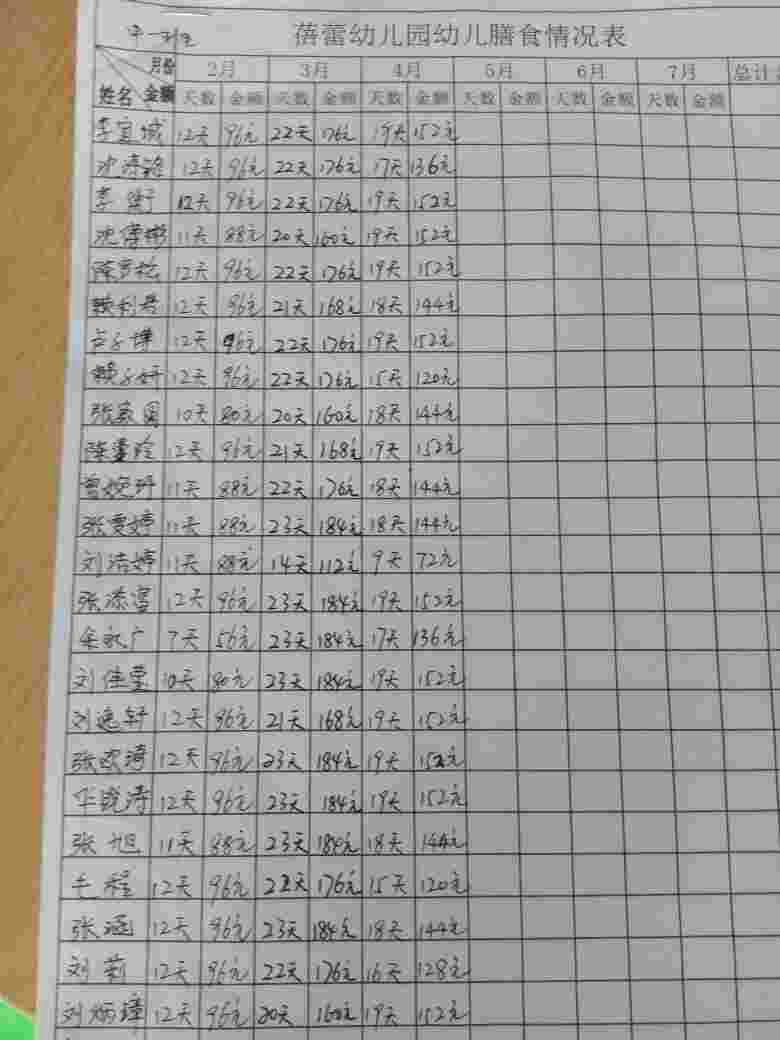 中一班
蓓蕾幼儿园幼儿膳食情况表
月份 2月 3月 4月 5月 6月 7月 总计
姓名 金额 天数 金额 天数 金额 天数 金额 天数 金额 天数 金额 天数 金额
李宜城 12天 96元 22天 176元 19天 152元
沈涛铭 12天 96元 22天 176元 17天 136元
李 12天 96元 22天 176元 19天 152元
沈 11天 88元 20天 160元 19天 152元
陈梦松 12天 96元 22天 176元 19天 152元
赖利君 12天 96元 21天 168元 18天 144元
卢子博 12天 96元 22天 176元 19天 152元
赖子妍 12天 96元 22天 176元 15天 120元
张家 10天 80元 20天 160元 18天 144元
陈 12天 96元 21天 168元 19天 152元
曾婉玲 11天 88元 22天 176元 18天 144元
张雯婷 11天 88元 23天 184元 18天 144元
刘洁婷 11天 88元 14天 112元 9天 72元
张添 12天 96元 23天 184元 19天 152元
朱永广 7天 56元 23天 184元 17天 136元
刘佳莹 10天 80元 23天 184元 19天 152元
刘逸轩 12天 96元 21天 168元 19天 152元
张欣涛 12天 96元 23天 184元 19天 152元
华锐涛 12天 96元 23天 184元 19天 152元
张旭 11天 88元 23天 184元 18天 144元
毛程 12天 96元 22天 176元 15天 120元
张涵 12天 96元 23天 184元 18天 144元
刘莉 12天 96元 22天 176元 16天 128元
刘炳璋 12天 96元 20天 160元 19天 152元